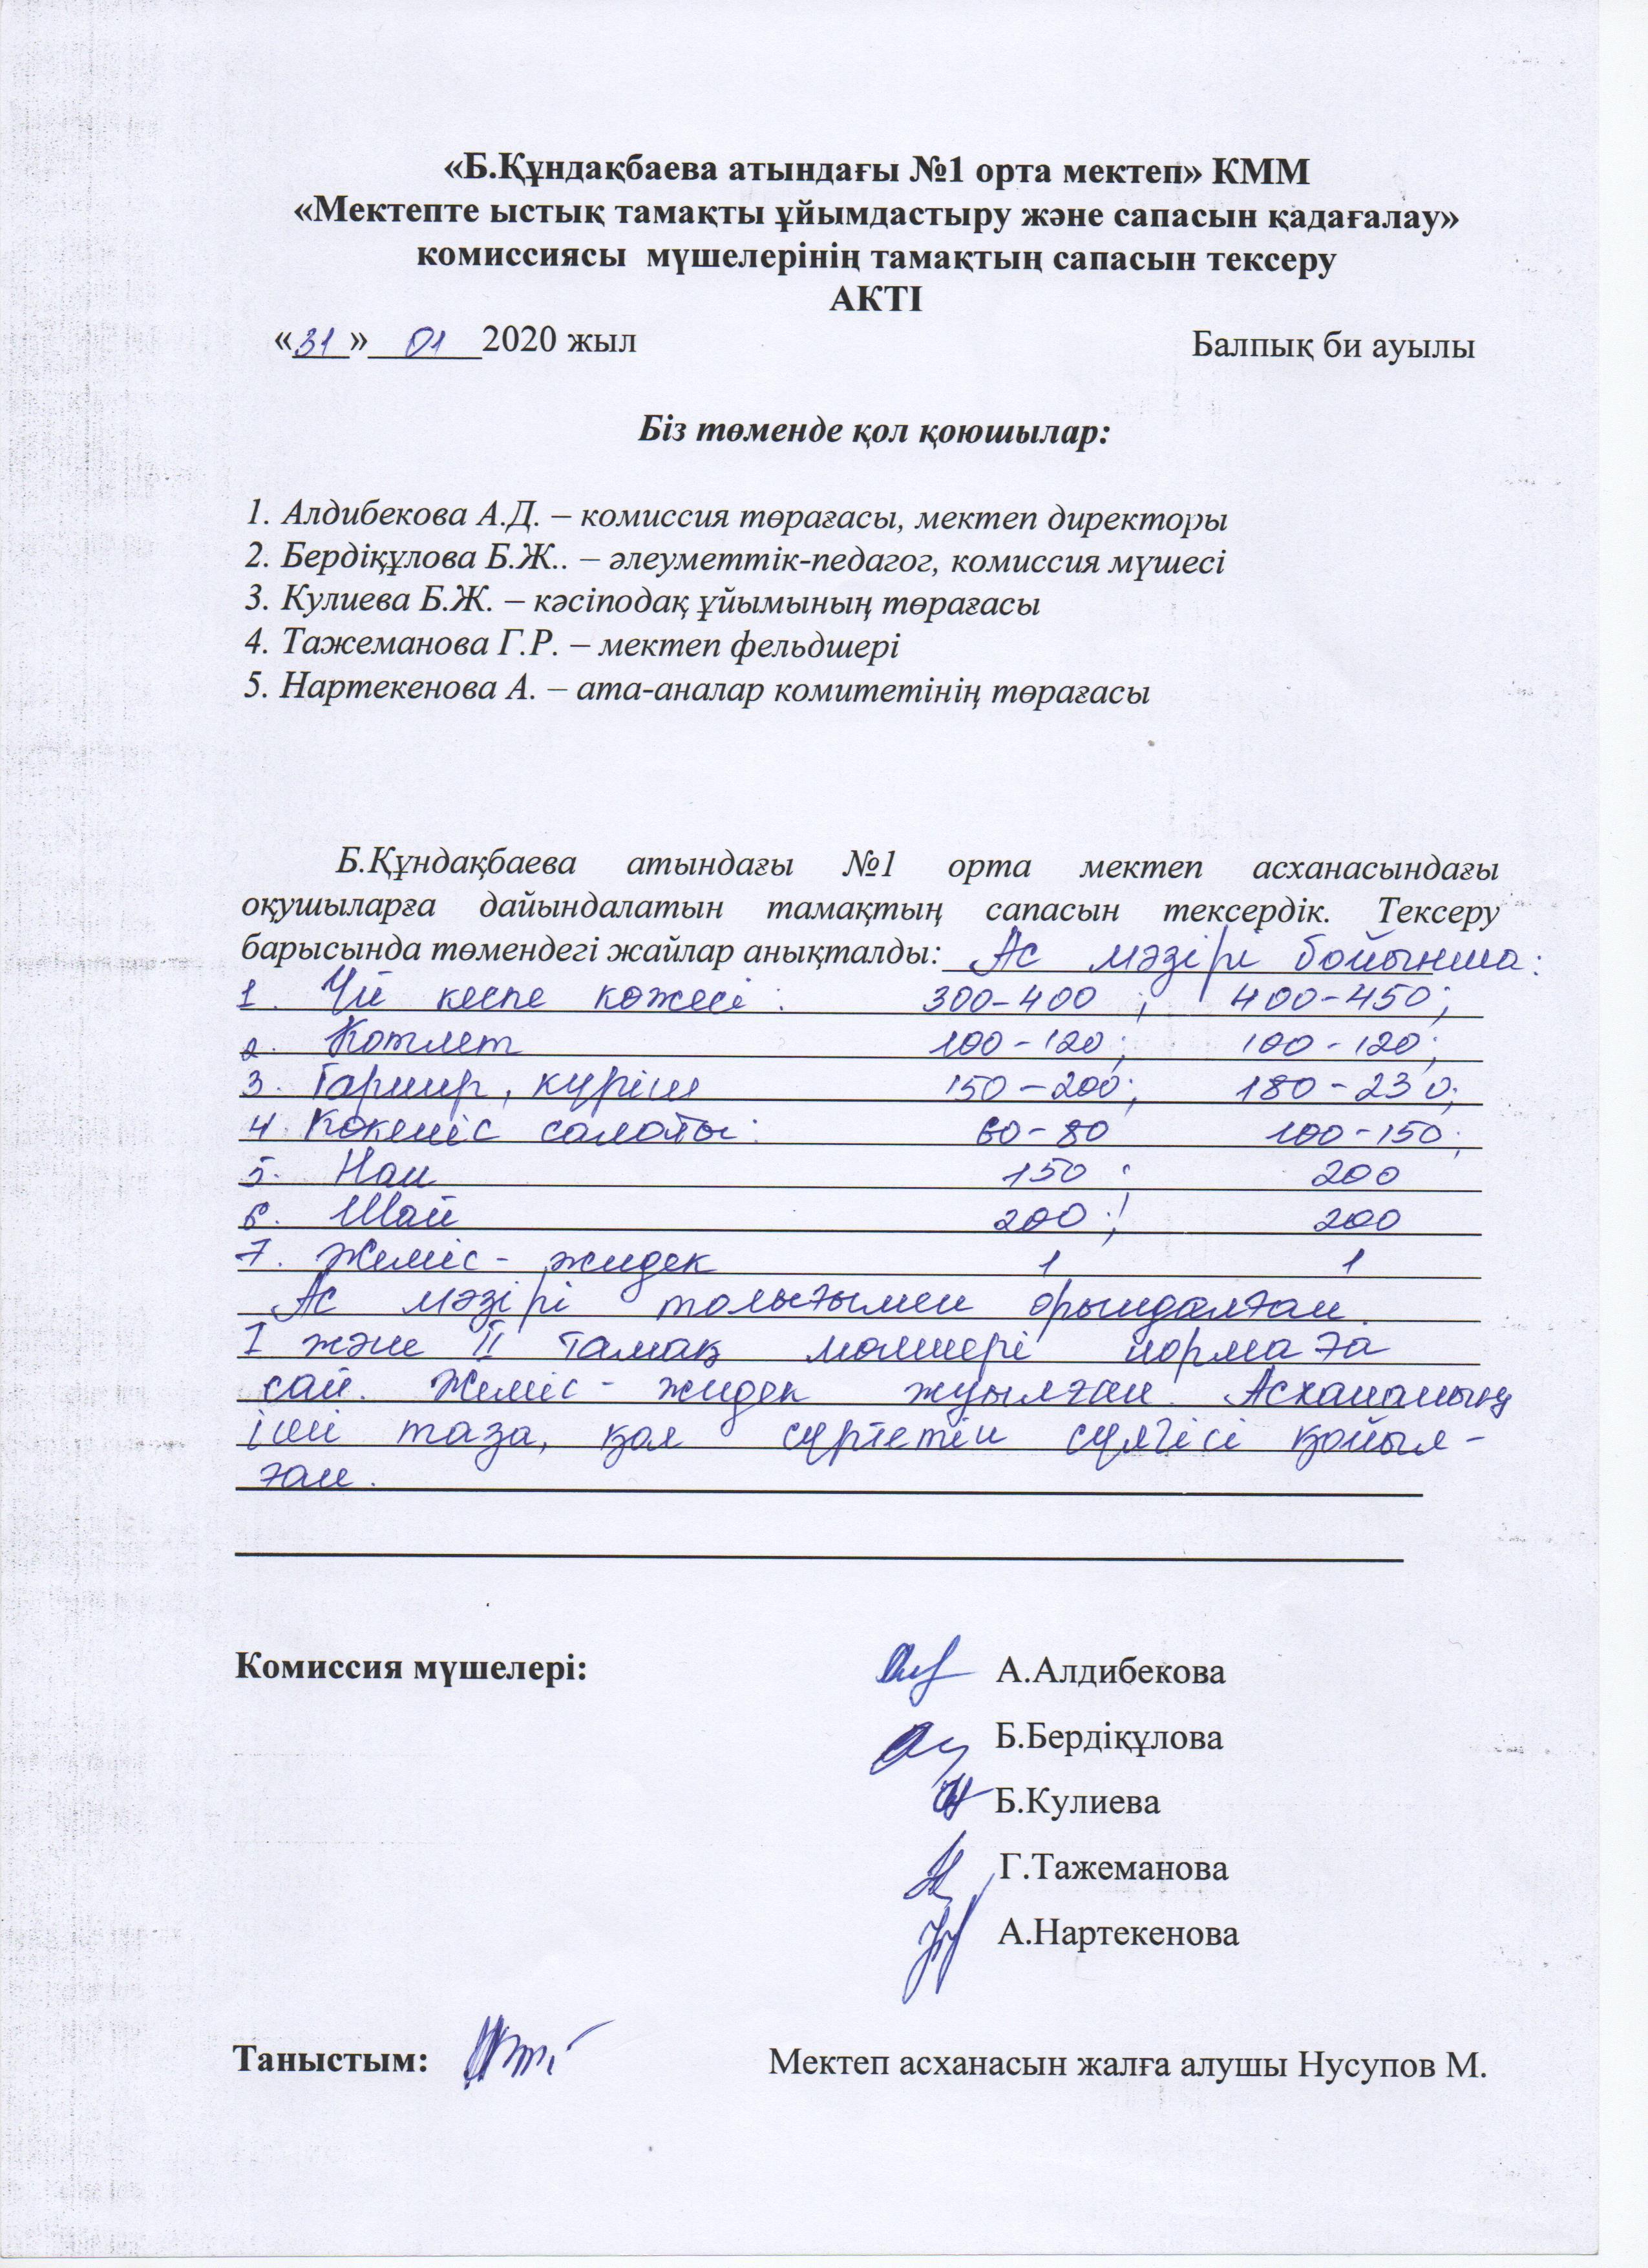 «Б.Құндақбаева атындағы №1 орта мектеп» КММ
«Мектепте ыстық тамақты ұйымдастыру және сапасын қадағалау»
комиссиясы мүшелерінің тамақтың сапасын тексеру
АКТІ
«31» 01 2020 жыл Балпық би ауылы
Біз төменде қол қоюшылар:
1. Алдибекова А.Д. – комиссия төрағасы, мектеп директоры
2. Бердіқұлова Б.Ж.. – әлеуметтік-педагог, комиссия мүшесі
3. Кулиева Б.Ж. – кәсіподақ ұйымының төрағасы
4. Тажеманова Г.Р. – мектеп фельдшері
5. Нартекенова А. – ата-аналар комитетінің төрағасы
Б.Құндақбаева атындағы №1 орта мектеп асханасындағы
оқушыларға дайындалатын тамақтың сапасын тексердік. Тексеру
барысында төмендегі жайлар анықталды: Ас мәзірі бойынша:
1. Үй кеспе көжесі: 300-400 ; 400-450;
2. Котлет 100-120; 100-120;
3. Гарнир, күріш 150-200; 180-230;
4. Көкөніс салаты: 60-80 100-150;
5. Нан 150 ; 200
6. Шай 200 ; 200
7. Жеміс-жидек 1 1
Ас мәзірі толығымен орындалған.
I және II тамақ мөлшері нормаға
сай. Жеміс-жидек жуылған. Асхананың
іші таза, қол сүртетін сүлгісі қойыл-
ған.
Комиссия мүшелері: А.Алдибекова
Б.Бердіқұлова
Б.Кулиева
Г.Тажеманова
А.Нартекенова
Таныстым: Мектеп асханасын жалға алушы Нусупов М.